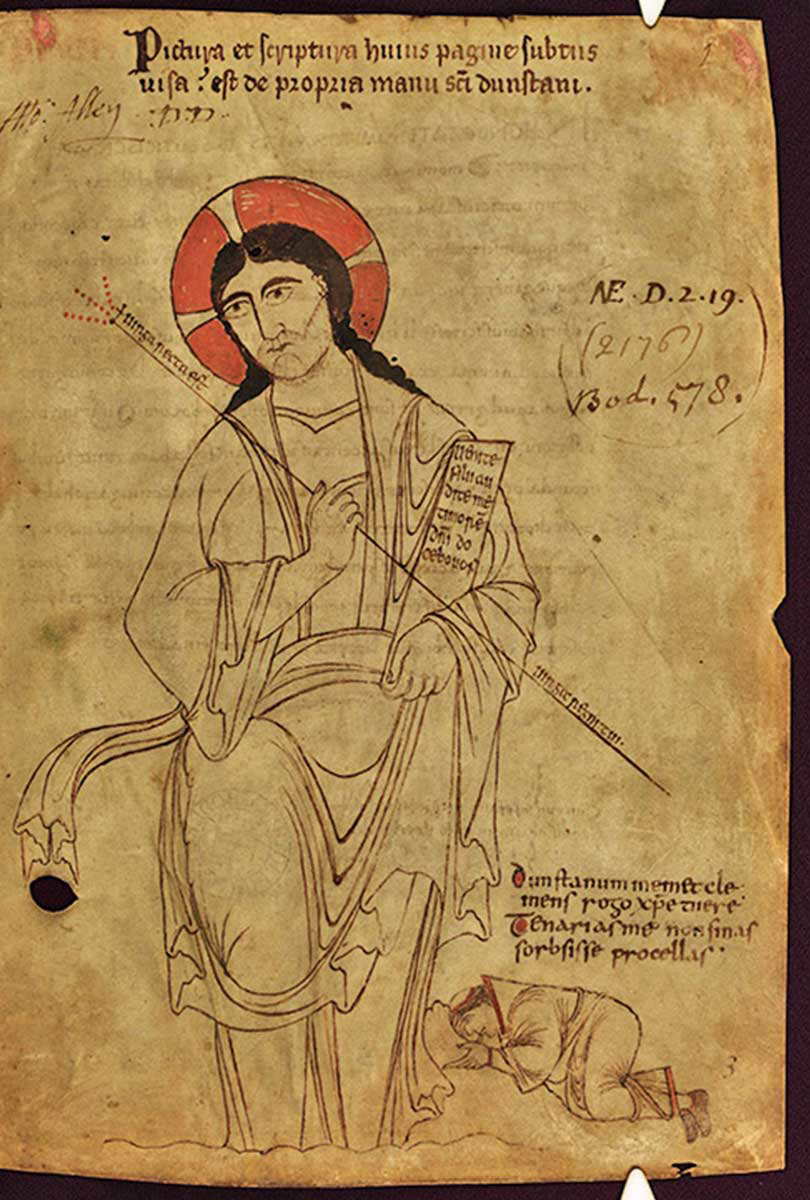 Pictura et scriptura huius pagine subtus
uisa : est de propria manu sc̄i dunstani.
1
NE. D. 2. 19.
(2176)
Bod. 578.
uenite
filii au
dite me
timorē
dn̄i do
cebo uos
dunstanum memet cle
mens rogo xp̄e tuere
Tenarias me non sinas
sorbsisse procellas
3